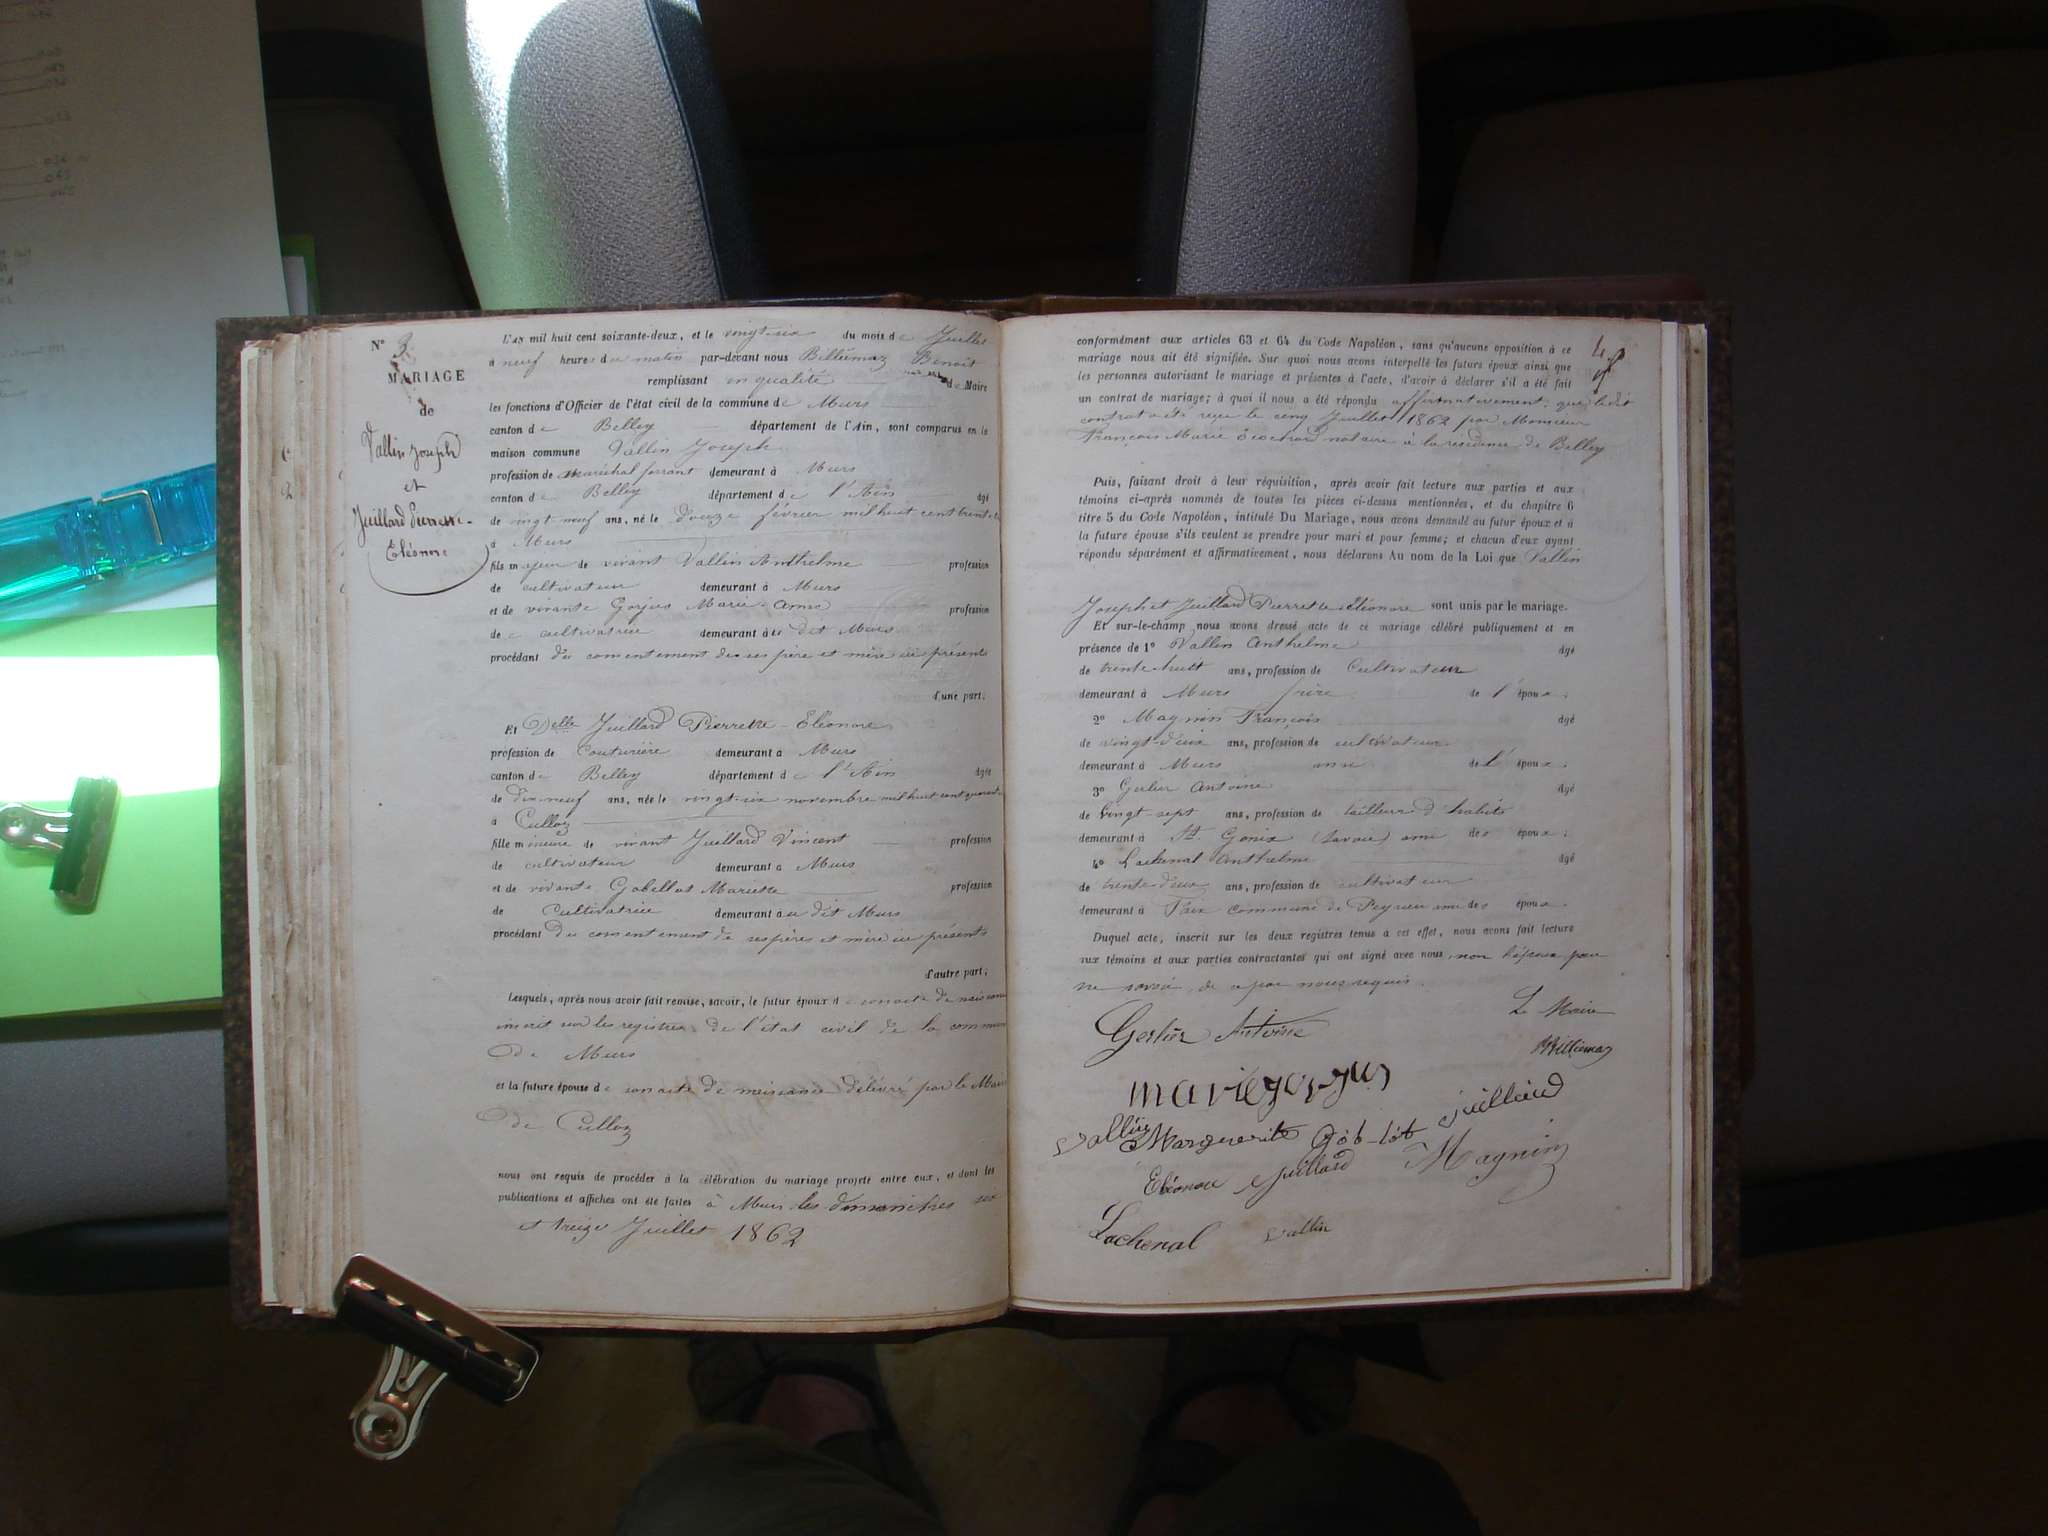 N° 3.
MARIAGE
de
Vallin Joseph
et
Juillard Pierrette-
Eléonore
L'an mil huit cent soixante-deux, et le vingt-six du mois de Juillet
à neuf heures du matin par-devant nous Billiémaz Benoit
remplissant en qualité de Maire
les fonctions d'Officier de l'état civil de la commune de Murs
canton de Belley département de l'Ain, sont comparus en la
maison commune Vallin Joseph
profession de maréchal ferrant demeurant à Murs
canton de Belley département de l'Ain âgé
de vingt-neuf ans, né le douze février mil huit cent trente
à Murs
fils majeur de vivant Vallin Anthelme profession
de cultivateur demeurant à Murs
et de vivante Gorjus Marie-Anne profession
de cultivatrice demeurant au dit Murs
procédant du consentement de ses père et mère ici présents
d'une part;
Et Delle Juillard Pierrette-Eléonore
profession de Couturière demeurant à Murs
canton de Belley département de l'Ain âgée
de dix-neuf ans, née le vingt-six novembre mil huit cent quarante
à Culloz
fille mineure de vivant Juillard Vincent profession
de cultivateur demeurant à Murs
et de vivante Gobellot Mariette profession
de Cultivatrice demeurant au dit Murs
procédant du consentement de ses père et mère ici présents
d'autre part;
Lesquels, après nous avoir fait remise, savoir, le futur époux de son acte de naissance
inscrit sur les registres de l'état civil de la commune
de Murs
et la future épouse de son acte de naissance délivré par le Maire
de Culloz
nous ont requis de procéder à la célébration du mariage projeté entre eux, et dont les
publications et affiches ont été faites à Murs les dimanches six
et treize Juillet 1862
conformément aux articles 63 et 64 du Code Napoléon, sans qu'aucune opposition à ce
mariage nous ait été signifiée. Sur quoi nous avons interpellé les futurs époux ainsi que
les personnes autorisant le mariage et présentes à l'acte, d'avoir à déclarer s'il a été fait
un contrat de mariage; à quoi il nous a été répondu affirmativement, que ledit
contrat a été reçu le cinq Juillet 1862 par Monsieur
François Marie notaire à la résidence de Belley
Puis, faisant droit à leur réquisition, après avoir fait lecture aux parties et aux
témoins ci-après nommés de toutes les pièces ci-dessus mentionnées, et du chapitre 6
titre 5 du Code Napoléon, intitulé Du Mariage, nous avons demandé au futur époux et à
la future épouse s'ils veulent se prendre pour mari et pour femme; et chacun d'eux ayant
répondu séparément et affirmativement, nous déclarons Au nom de la Loi que Vallin
Joseph et Juillard Pierrette Eléonore sont unis par le mariage.
Et sur-le-champ nous avons dressé acte de ce mariage célébré publiquement et en
présence de 1° Vallin Anthelme âgé
de trente huit ans, profession de Cultivateur
demeurant à Murs frère de l'époux.
2° Magnin François âgé
de vingt-deux ans, profession de cultivateur
demeurant à Murs ami de l'époux.
3° Gerlier Antoine âgé
de vingt-sept ans, profession de tailleur d'habits
demeurant à St Genix (Savoie) ami des époux;
4° Lachenal Anthelme âgé
de trente deux ans, profession de cultivateur
demeurant à commune de Peyrieu ami des époux.
Duquel acte, inscrit sur les deux registres tenus à cet effet, nous avons fait lecture
aux témoins et aux parties contractantes qui ont signé avec nous, non l'époux pour
ne savoir, de ce par nous requis.
Gerlier Antoine
Le Maire
Billiemaz
marie gorgus
vallin Marguerite Gob-lot juilliard
Eléonore Juillard Magnin
Lachenal vallin